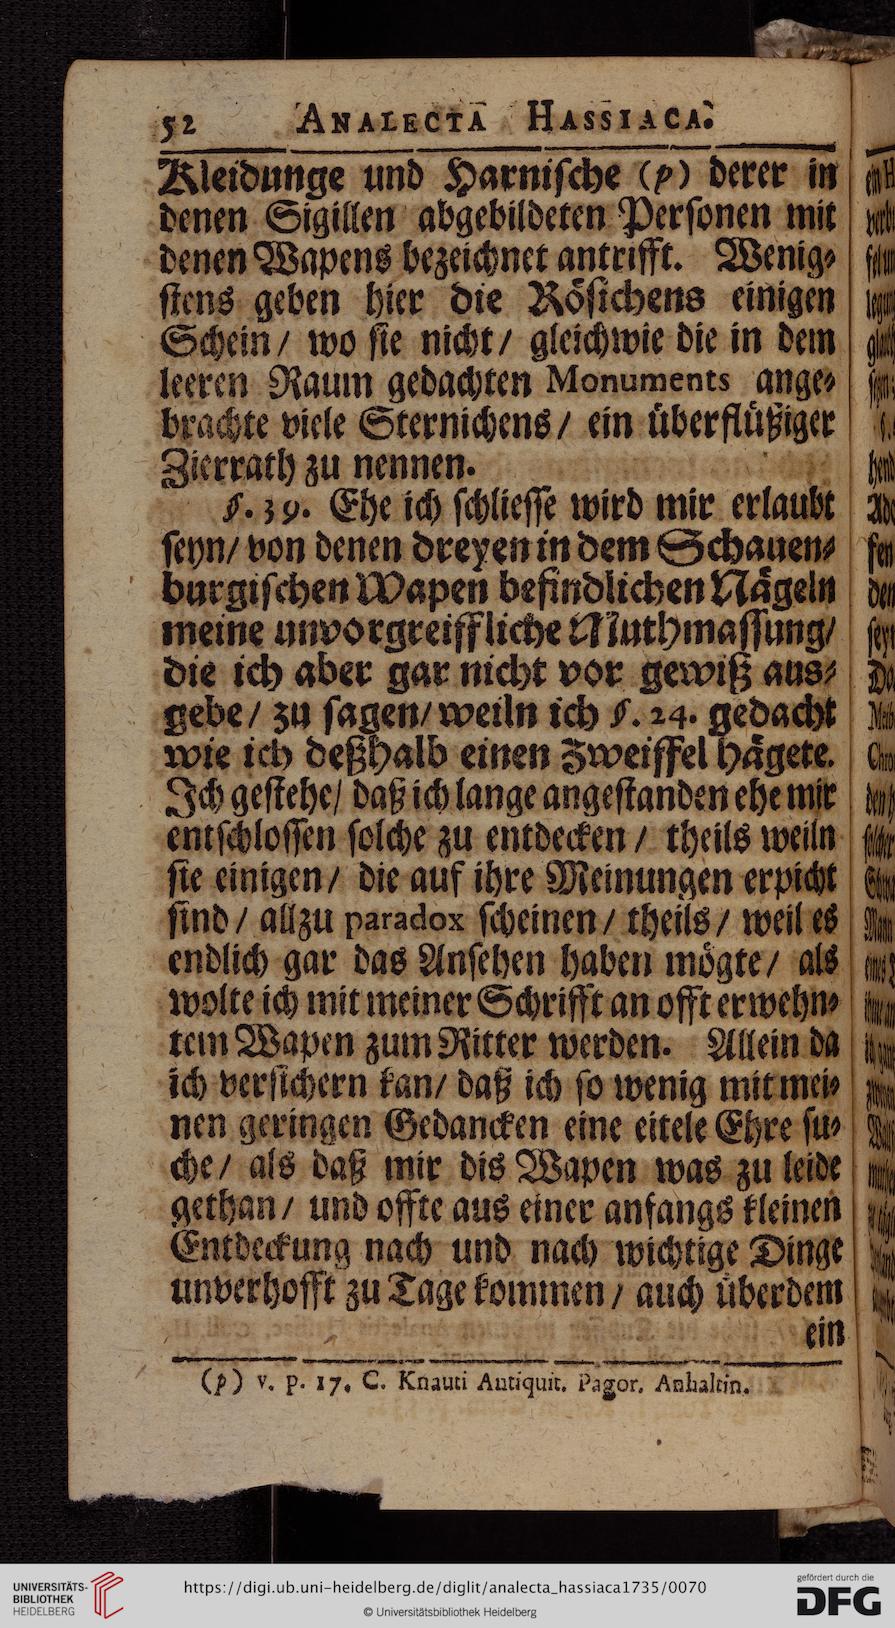 52 ANALECTA HASSIACA.
Kleidunge und Harnische (p) derer in
denen Sigillen abgebildeten Personen mit
denen Wapens bezeichnet antrifft. Wenig-
stens geben hier die Rösichens einigen
Schein/ wo sie nicht/ gleichwie die in dem
leeren Raum gedachten Monuments ange-
brachte viele Sternichens/ ein überflüßiger
Zierrath zu nennen.
§. 39. Ehe ich schliesse wird mir erlaubt
seyn/ von denen dreyen in dem Schauen-
burgischen Wapen befindlichen Nägeln
meine unvorgreiffliche Muthmassung/
die ich aber gar nicht vor gewiß aus-
gebe/ zu sagen/ weiln ich §. 24. gedacht
wie ich deßhalb einen Zweiffel hägete.
Ich gestehe/ daß ich lange angestanden ehe mir
entschlossen solche zu entdecken/ theils weiln
sie einigen/ die auf ihre Meinungen erpicht
sind/ allzu paradox scheinen/ theils/ weil es
endlich gar das Ansehen haben mögte/ als
wolte ich mit meiner Schrifft an offt erwehn-
tem Wapen zum Ritter werden. Allein da
ich versichern kan/ daß ich so wenig mit mei-
nen geringen Gedancken eine eitele Ehre su-
che/ als daß mir dis Wapen was zu leide
gethan/ und offte aus einer anfangs kleinen
Entdeckung nach und nach wichtige Dinge
unverhofft zu Tage kommen/ auch überdem
ein
(p) v. p. 17. C. Knauti Antiquit. Pagor. Anhaltin.
UNIVERSITÄTS-
BIBLIOTHEK
HEIDELBERG
https://digi.ub.uni-heidelberg.de/diglit/analecta_hassiaca1735/0070
© Universitätsbibliothek Heidelberg
gefördert durch die
DFG